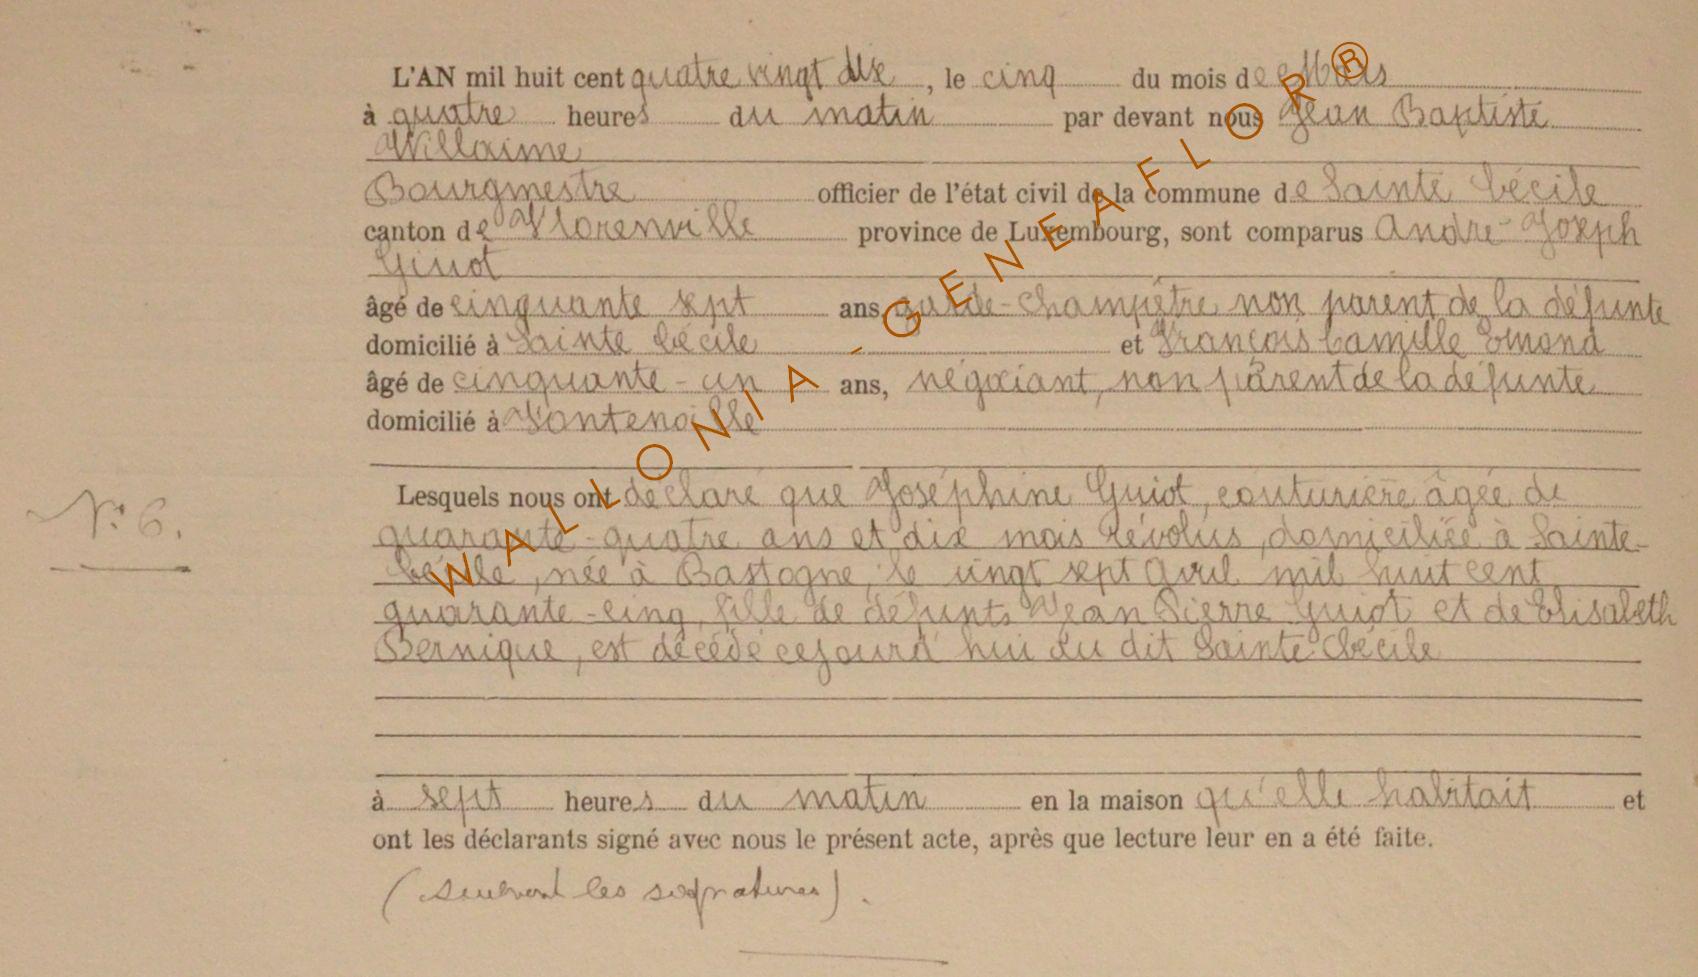 L'AN mil huit cent quatre vingt dix, le cinq du mois de Mars
à quatre heures du matin par devant nous Jean Baptiste
Willaime
Bourgmestre officier de l'état civil de la commune de Sainte Cécile
canton de Florenville province de Luxembourg, sont comparus André-Joseph
Guiot
âgé de cinquante sept ans, garde-champêtre non parent de la défunte
domicilié à Sainte Cécile et François Camille Emond
âgé de cinquante-un ans, négociant, non parent de la défunte
domicilié à Fontenoille
Lesquels nous ont déclaré que Joséphine Guiot, couturière âgée de
N.° 6.
quarante-quatre ans et dix mois révolus, domiciliée à Sainte-
Cécile, née à Bastogne, le vingt sept avril mil huit cent
quarante-cinq, fille de défunts Jean Pierre Guiot et de Elisabeth
Bernique, est décédé cejourd'hui au dit Sainte-Cécile
à sept heures du matin en la maison qu'elle habitait et
ont les déclarants signé avec nous le présent acte, après que lecture leur en a été faite.
(suivent les signatures).
WALLONIA-GENEAFLOR®